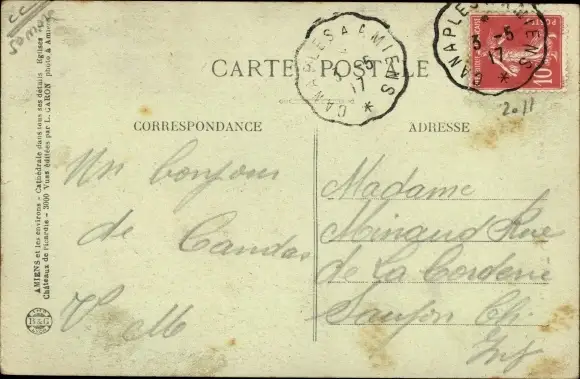 CARTE POSTALE
CANAPLES A AMIENS
3 -5
17
CANAPLES A AMIENS
3 -5
17
10
2011
CORRESPONDANCE
ADRESSE
Un bonjour
de Candas
M
Madame
Minaud Rue
de La Corderie
Saujon Ch.
Inf
AMIENS et les environs - Cathédrale dans tous ses détails Eglises
Châteaux de Picardie - 3000 Vues éditées par L. CARON photo à Amiens
B & G